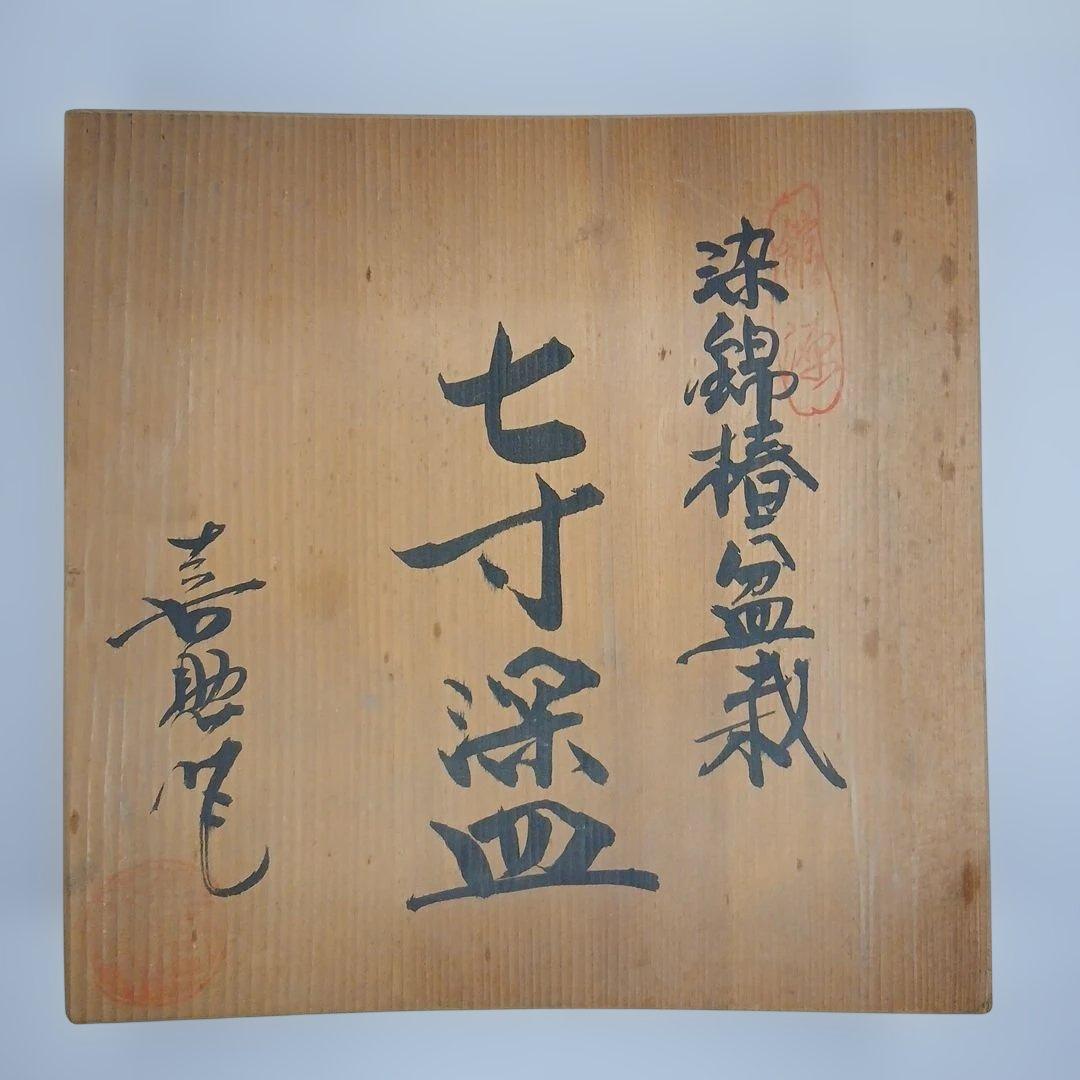 染錦椿盆栽
七寸深皿
喜助作